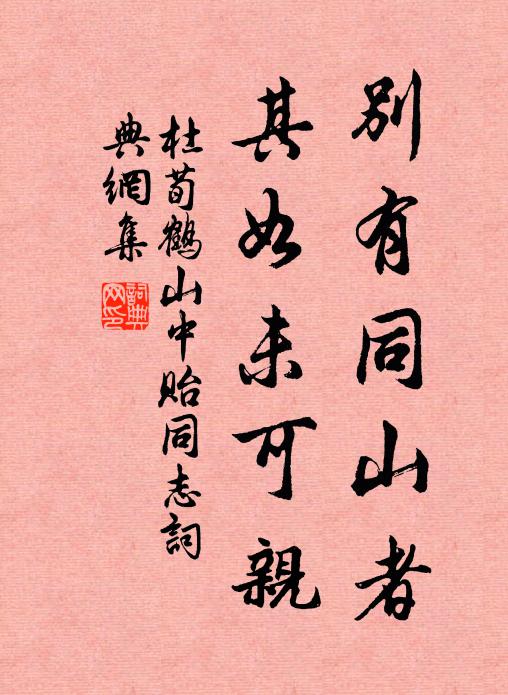 別有同山者
其如未可親
杜荀鶴山中貽同志詞
典網集
詞典
网印